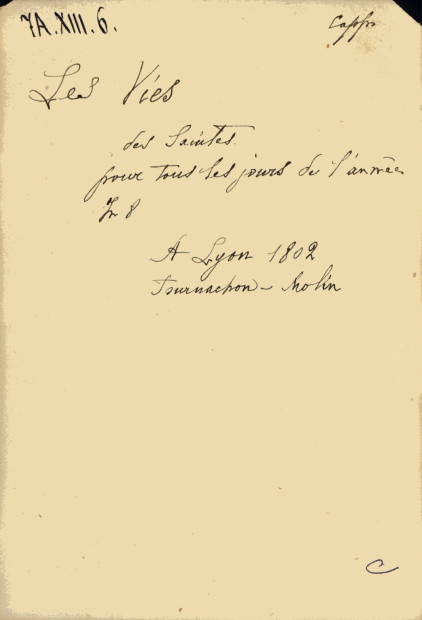 7A.XIII.6.
Les Vies
des Saintes
pour tous les jours de l'année
In 8
A Lyon 1802
Tournachon - Molin
C